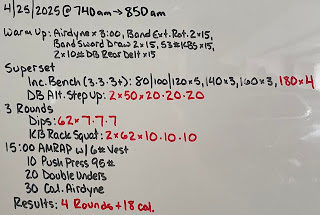 4/25/2025 @ 740am → 850am
Warm Up: Airdyne x 3:00, Band Ext. Rot. 2x15,
Band Sword Draw 2x15, 53# KBS x 15,
2x10# DB Rear Delt x 15
Superset
Inc. Bench (3.3.3+): 80/100/120x5, 140x3, 160x3, 180x4
DB Alt. Step Up: 2x50x20.20.20
3 Rounds
Dips: 62x7.7.7
KB Rack Squat: 2x62x10.10.10
15:00 AMRAP w/ 6# Vest
10 Push Press 95#
20 Double Unders
30 Cal. Airdyne
Results: 4 Rounds + 18 Cal.